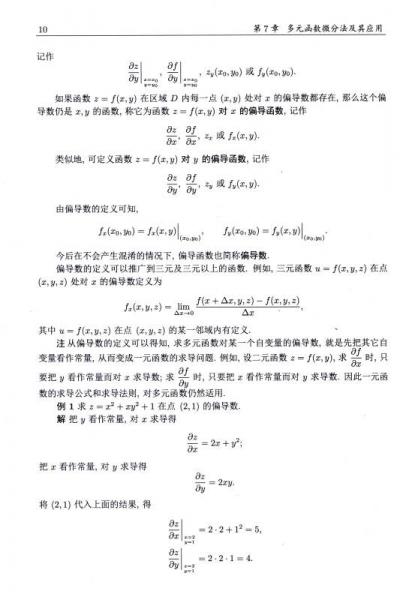 10 第 7 章 多元函数微分法及其应用
记作
∂z/∂y|_{x=x₀, y=y₀}, ∂f/∂y|_{x=x₀, y=y₀}, z_y(x₀,y₀) 或 f_y(x₀,y₀).
如果函数 z = f(x,y) 在区域 D 内每一点 (x,y) 处对 x 的偏导数都存在, 那么这个偏
导数仍是 x,y 的函数, 称它为函数 z = f(x,y) 对 x 的偏导函数, 记作
∂z/∂x, ∂f/∂x, z_x 或 f_x(x,y).
类似地, 可定义函数 z = f(x,y) 对 y 的偏导函数, 记作
∂z/∂y, ∂f/∂y, z_y 或 f_y(x,y).
由偏导数的定义可知,
f_x(x₀,y₀) = f_x(x,y)|_{(x₀,y₀)}, f_y(x₀,y₀) = f_y(x,y)|_{(x₀,y₀)}.
今后在不会产生混淆的情况下, 偏导函数也简称偏导数.
偏导数的定义可以推广到三元及三元以上的函数. 例如, 三元函数 u = f(x,y,z) 在点
(x,y,z) 处对 x 的偏导数定义为
f_x(x,y,z) = lim_{Δx→0} (f(x + Δx,y,z) − f(x,y,z))/Δx,
其中 u = f(x,y,z) 在点 (x,y,z) 的某一邻域内有定义.
注 从偏导数的定义可以得知, 求多元函数对某一个自变量的偏导数, 就是先把其它自
变量看作常量, 从而变成一元函数的求导问题. 例如, 设二元函数 z = f(x,y), 求 ∂f/∂x 时, 只
要把 y 看作常量而对 x 求导数; 求 ∂f/∂y 时, 只要把 x 看作常量而对 y 求导数. 因此一元函
数的求导公式和求导法则, 对多元函数仍然适用.
例 1 求 z = x² + xy² + 1 在点 (2,1) 的偏导数.
解 把 y 看作常量, 对 x 求导得
∂z/∂x = 2x + y²;
把 x 看作常量, 对 y 求导得
∂z/∂y = 2xy.
将 (2,1) 代入上面的结果, 得
∂z/∂x|_{x=2, y=1} = 2 · 2 + 1² = 5,
∂z/∂y|_{x=2, y=1} = 2 · 2 · 1 = 4.